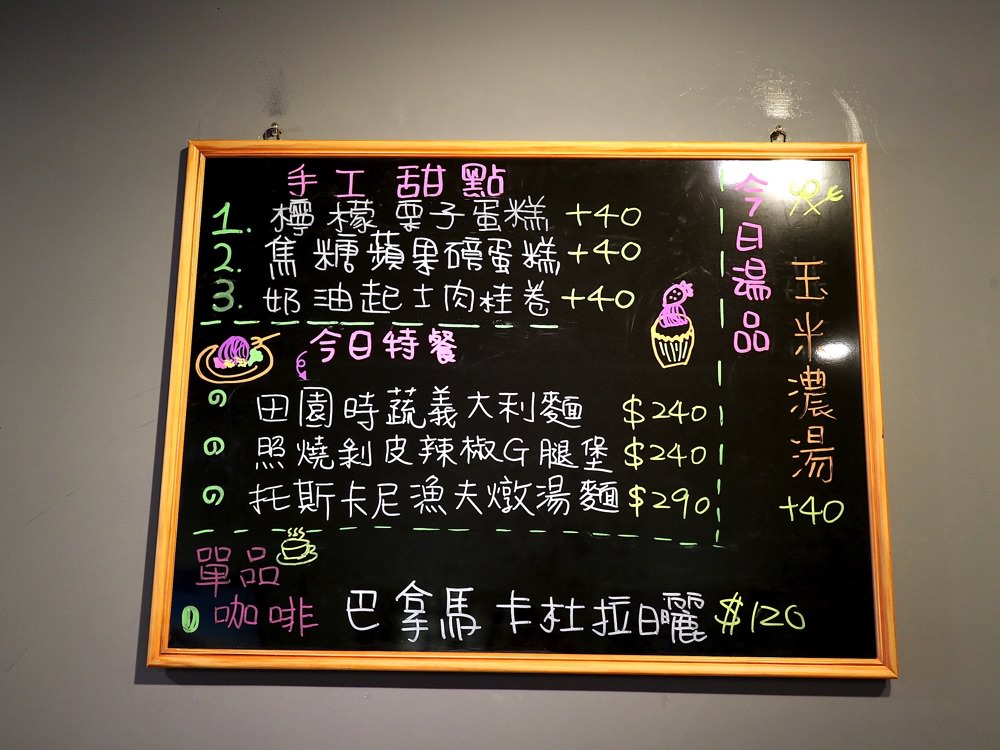 手工甜點
1. 檸檬栗子蛋糕 +40
2. 焦糖蘋果磅蛋糕 +40
3. 奶油起士肉桂卷 +40
今日特餐
田園時蔬義大利麵 $240
照燒剝皮辣椒G腿堡 $240
托斯卡尼漁夫燉湯麵 $290
今日湯品
玉米濃湯
+40
單品
咖啡 巴拿馬 卡杜拉日曬 $120